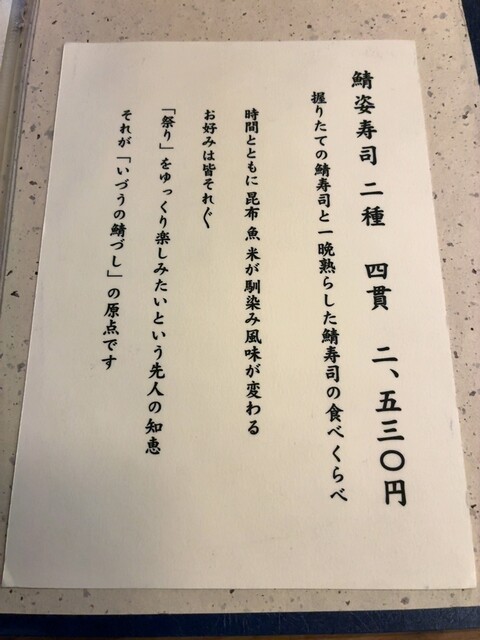 鯖姿寿司 二種 四貫 二、五三〇円
握りたての鯖寿司と一晩熟らした鯖寿司の食べくらべ
時間とともに昆布 魚 米が馴染み風味が変わる
お好みは皆それ〴〵
「祭り」をゆっくり楽しみたいという先人の知恵
それが「いづうの鯖づし」の原点です